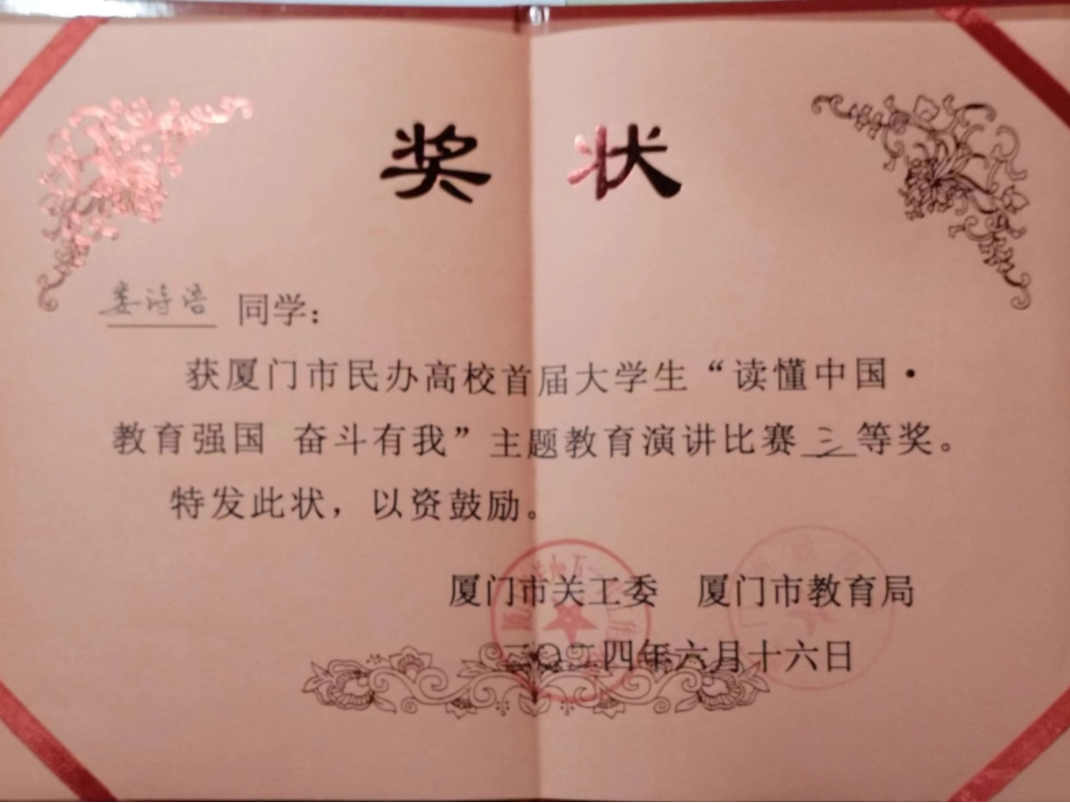 奖 状
娄诗涪 同学：
获厦门市民办高校首届大学生“读懂中国·
教育强国 奋斗有我”主题教育演讲比赛三等奖。
特发此状，以资鼓励。
厦门市关工委 厦门市教育局
二〇二四年六月十六日